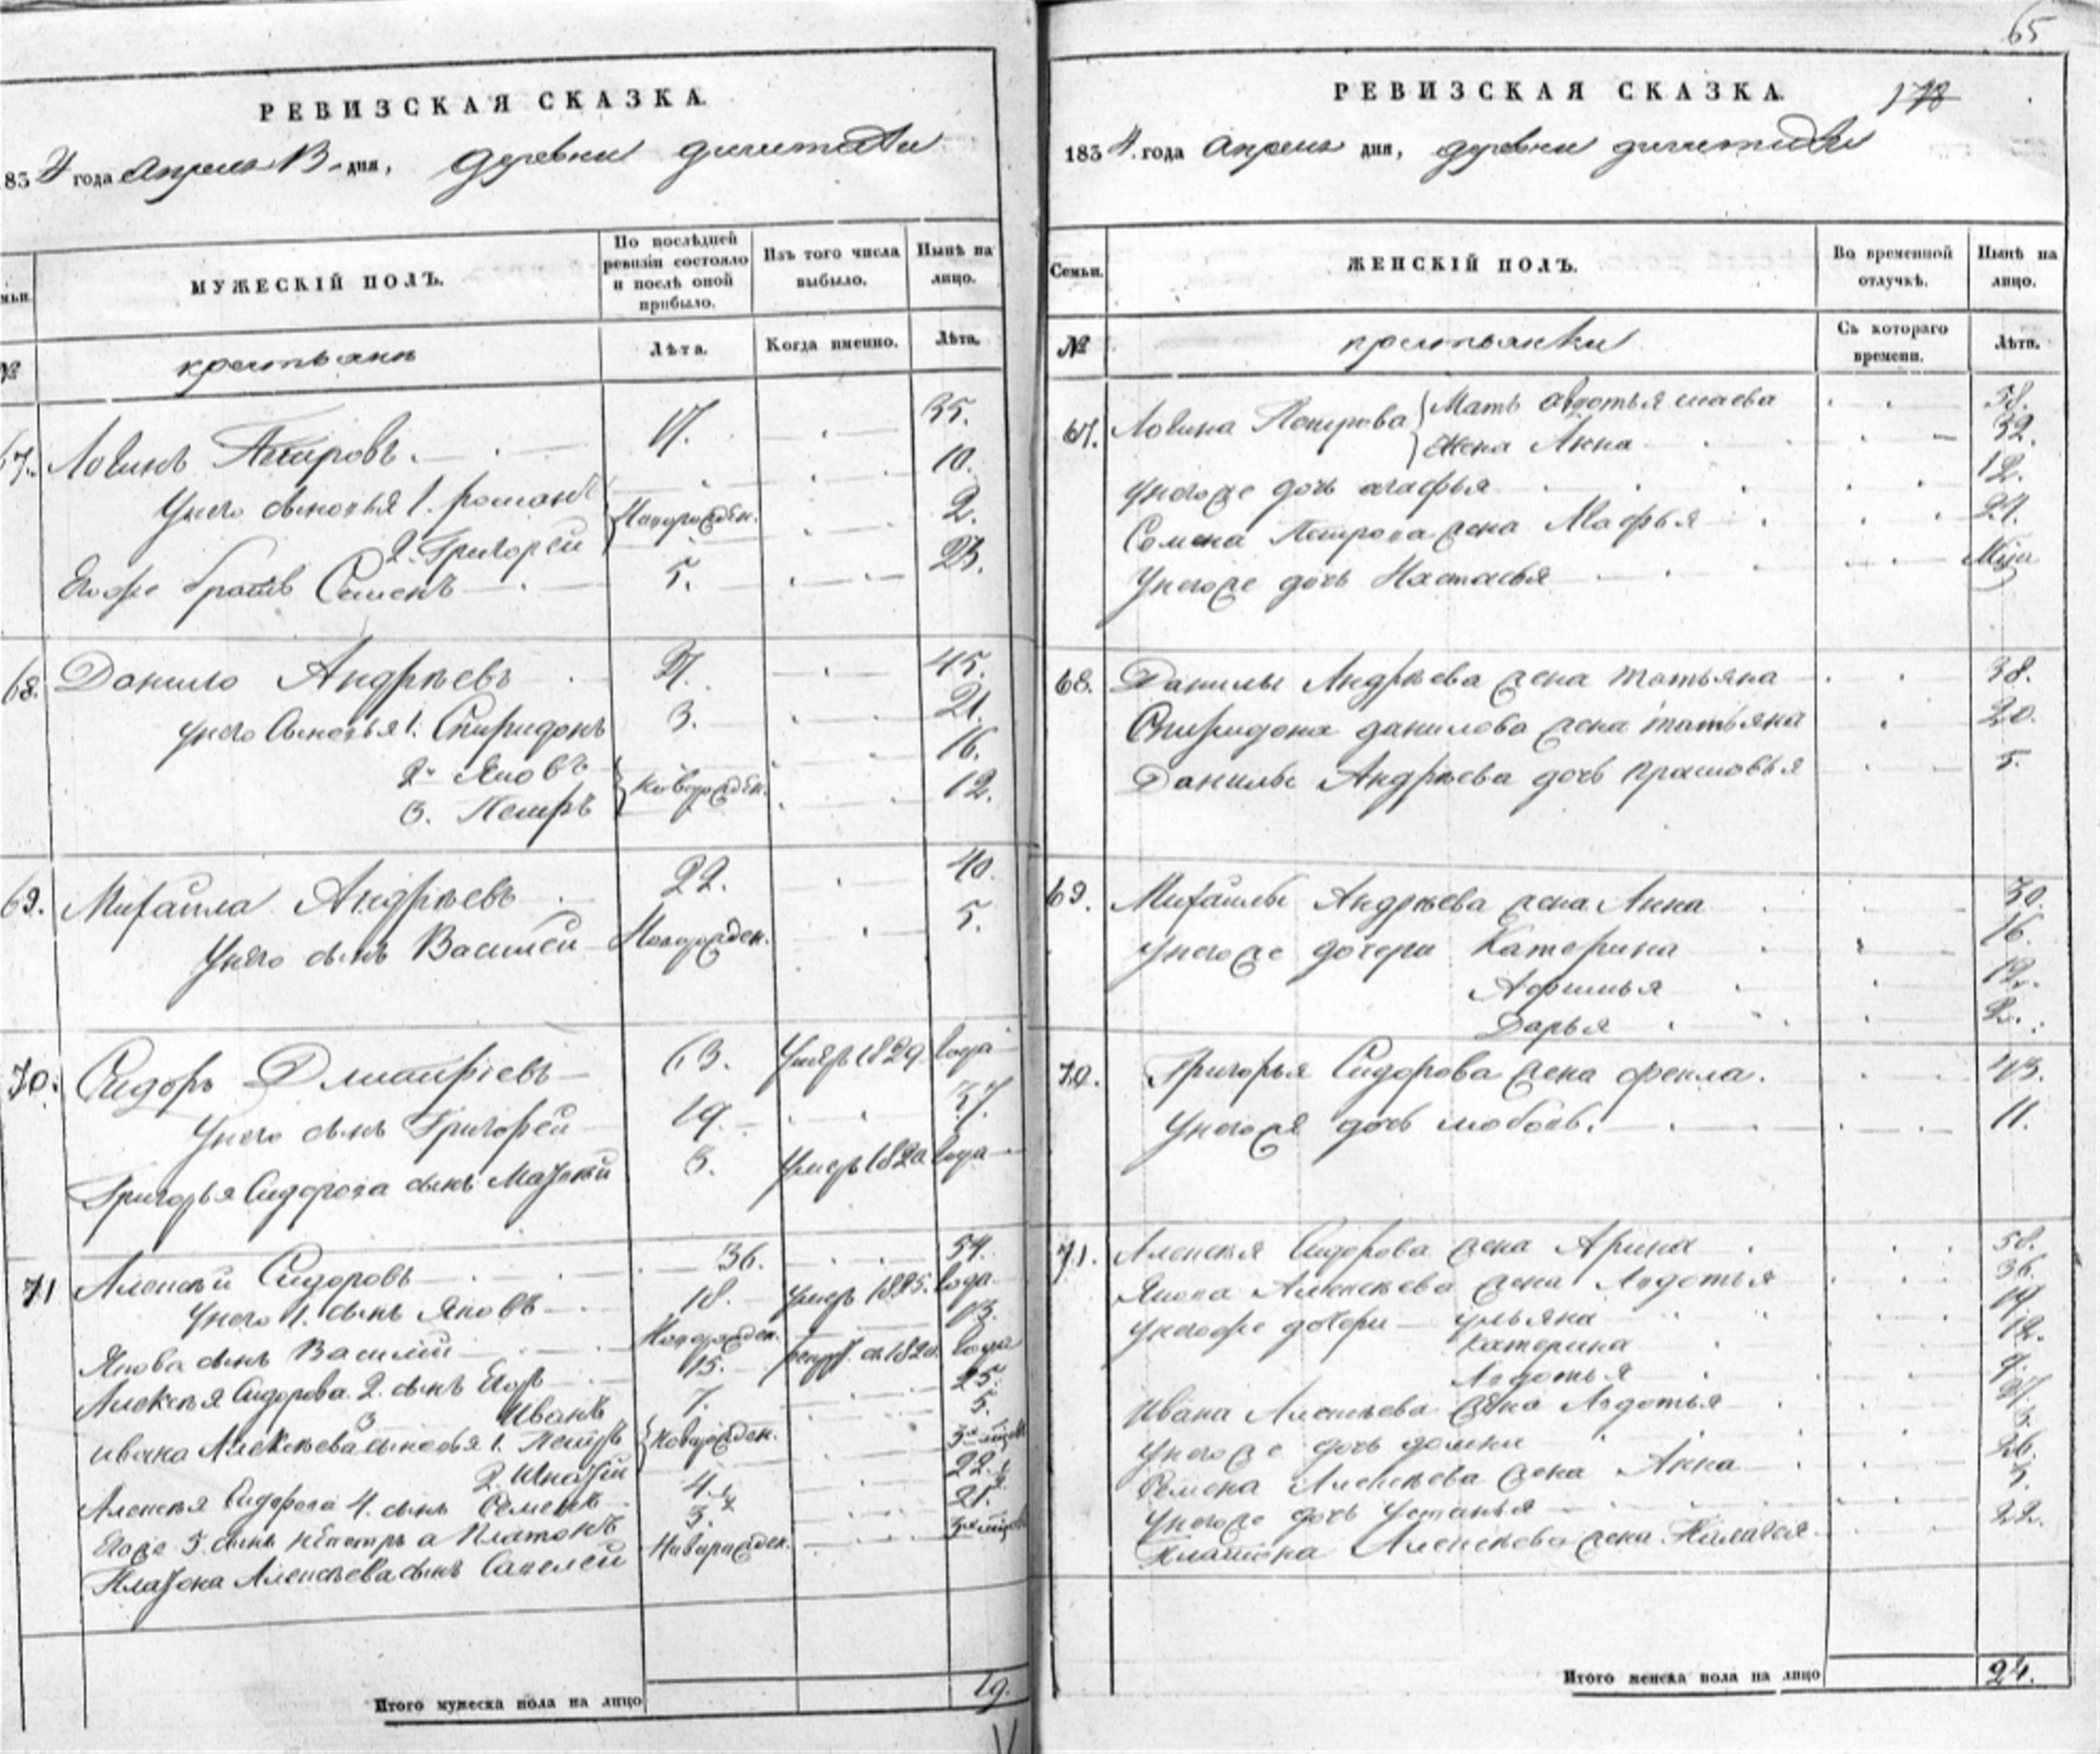 РЕВИЗСКАЯ СКАЗКА.
1834 года апреля 13 дня, деревни
МУЖЕСКІЙ ПОЛЪ.
По послѣдней ревизіи состояло и послѣ оной прибыло.
Изъ того числа выбыло.
Нынѣ на лицо.
№
крестьяне
Лѣта.
Когда именно.
Лѣта.
67. Логинъ Петровъ. 17. 35.
У него сыновья 1. романъ 10.
новорожден.
2. Григорей 2.
Его же братъ Семенъ 5. 23.
68. Данило Андрѣевъ 27. 45.
у него сыновья 1. Спиридонъ 3. 21.
2. Яковъ 16.
новорожден.
3. Петръ 12.
69. Михаила Андрѣевъ 22. 40.
У него сынъ Василей новорожден. 5.
70. Сидоръ Дмитріевъ 63. умеръ 1829 года
У него сынъ Григорей 19. 37.
Григорья Сидорова сынъ 3. умеръ 1820 года
71 Алексѣй Сидоровъ 36. 54.
У него 1. сынъ Яковъ 18. умеръ 1825. года
Якова сынъ Василій новорожден. 13.
Алексѣя Сидорова 2. сынъ Егоръ 15. года
3 Иванъ 7. 25.
Ивана Алексѣева сыновья 1. Петръ новорожден. 5.
2. Игнатій
Алексѣя Сидорова 4. сынъ Семенъ 4. 22.
Его же 5. сынъ Платонъ 3. 21.
Платона Алексѣева сынъ Савелей новорожден.
Итого мужеска пола на лицо 19.
65
178
РЕВИЗСКАЯ СКАЗКА.
1834. года апреля дня, деревни
Семьи.
ЖЕНСКІЙ ПОЛЪ.
Во временной отлучкѣ.
Нынѣ на лицо.
№
крестьянки
Съ котораго времени.
Лѣта.
67. Логина Петрова Мать авдотья 58.
жена Анна 32.
У него же дочь агафья 12.
Семена Петрова жена Марфья 21.
У него же дочь Настасья
68. Данилы Андрѣева жена татьяна 38.
Спиридона данилова жена татьяна 20.
Данилы Андрѣева дочь прасковья 5.
69. Михаилы Андрѣева жена Анна 30.
У него же дочери Катерина 16.
Афимья 12.
Дарья 2.
70. Григорья Сидорова жена фекла. 43.
У него же дочь любовь. 11.
71. Алексѣя Сидорова жена Арина 58.
Якова Алексѣева жена Авдотья 36.
У него же дочери ульяна 19
Катерина 12.
Авдотья
Ивана Алексѣева жена Авдотья 27.
У него же дочь домна
Семена Алексѣева жена Анна 26.
У него же дочь Устинья 3.
Платона Алексѣева жена Пелагея 22.
Итого женска пола на лицо 24.